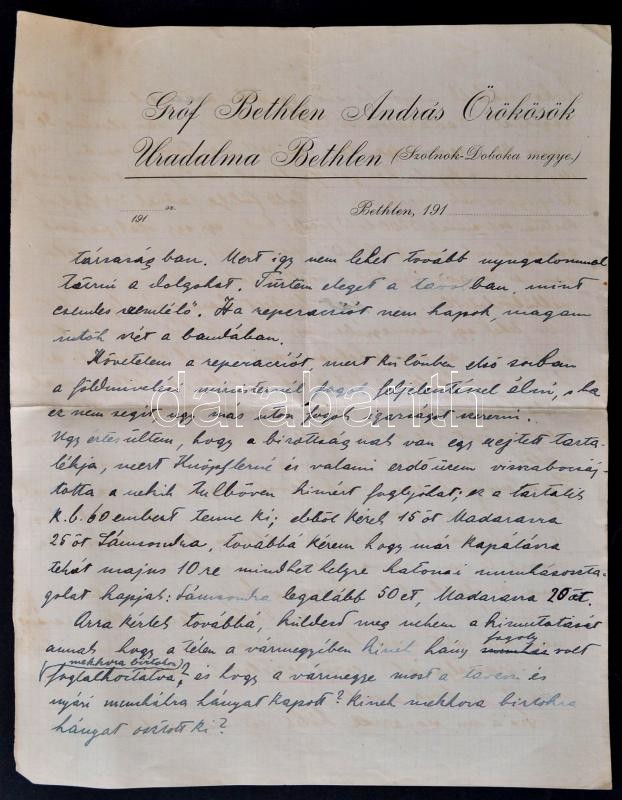 Gróf Bethlen András Örökösök
Uradalma Bethlen (Szolnok-Doboka megye.)
191 sz.
Bethlen, 191
társaságban. Mert így nem lehet tovább nyugalommal
tűrni a dolgokat. Tűrtem eleget a távolban, mint
csendes szemlélő. Ha reperációt nem kapok, magam
ütök rést a bandában.
Követelem a reperációt mert különben első sorban
a földmivelési miniszternél fogok feljelentéssel élni, s ha
ez nem segit, ugy más uton fogok igazságot szerezni.
Ugy értesültem, hogy a bizottságnak van egy rejtett tarta-
lékja, mert és valami erdőüzem visszabocsáj-
totta a nekik tulbőven kimért foglyokat; ez a tartalék
k.b. 60 embert tenne ki; ebből kérek 15öt Madarasra
25öt Sámsondra, továbbá kérem hogy már kapálásra
tehát majus 10re mindkét helyre katonai munkásosta-
golat kapjak: Sámsondra legalább 50et, Madarasra 20at.
Arra kérlek továbbá, küldesd meg nekem a kimutatását
annak hogy a télen a vármegyében kinek hány fogoly volt
mekkora birtokra
foglalkoztatva? és hogy a vármegye most a tavaszi és
nyári munkákra hányat kapott? kinek mekkora birtokra
hányat osztott ki?
darabanth